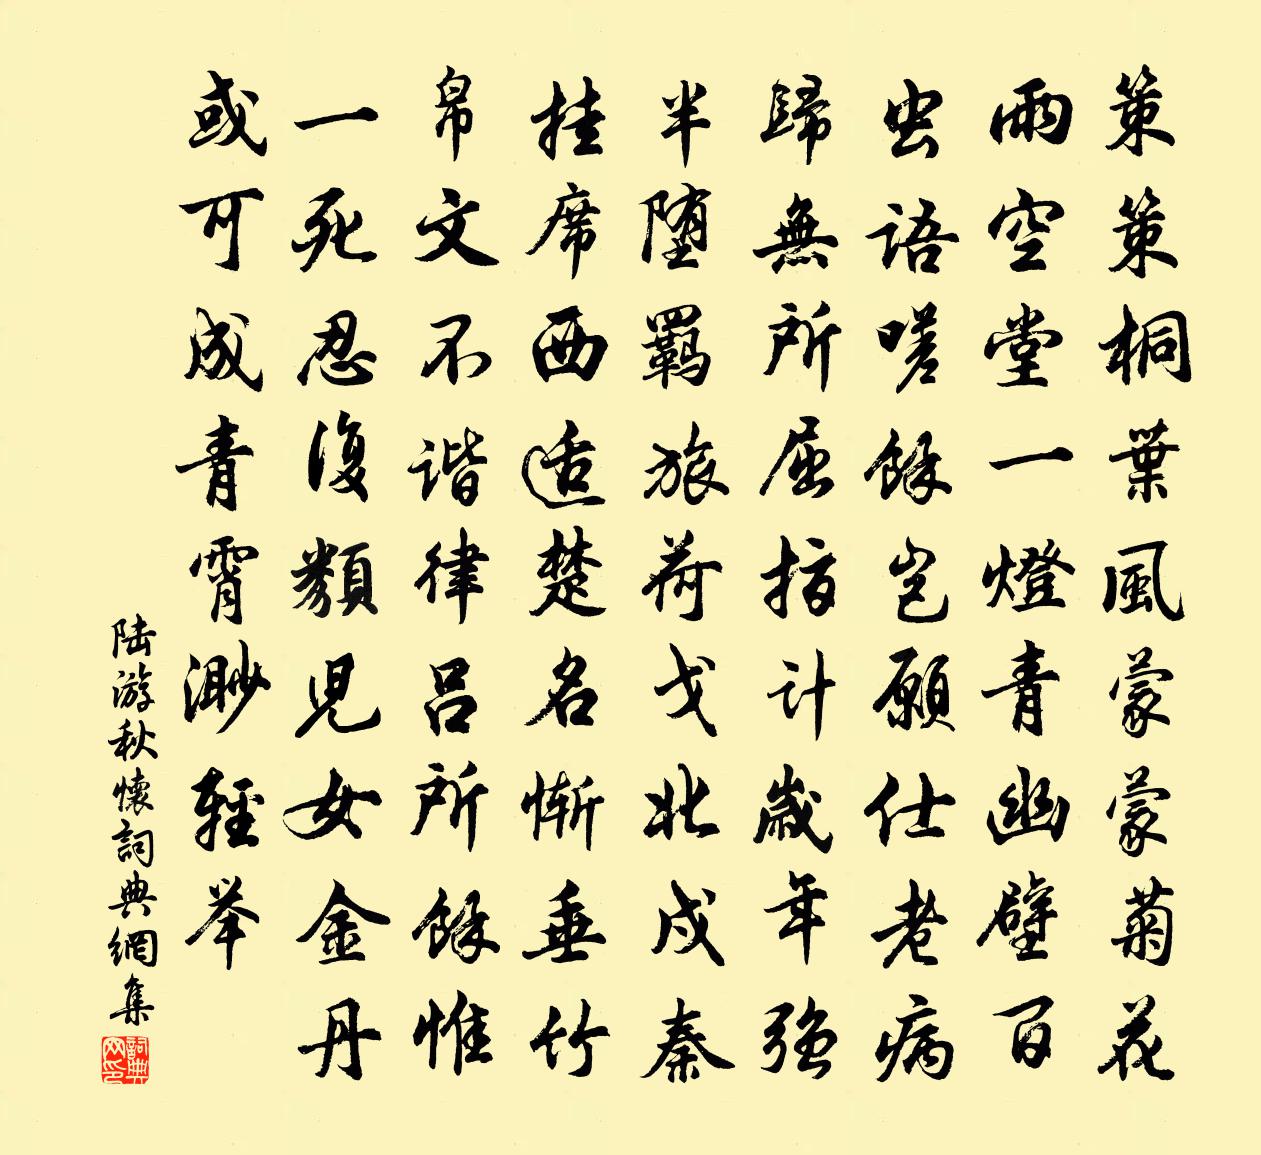 策策桐葉風蒙蒙菊花
雨空堂一燈青幽壁百
虫語嗟餘豈願仕老病
歸無所屈指計歲年強
半堕羈旅荷戈北戍秦
挂席西适楚名慚垂竹
帛文不谐律吕所餘惟
一死忍復類兒女金丹
或可成青霄渺輕举
陆游秋懷詞典網集
詞典网印